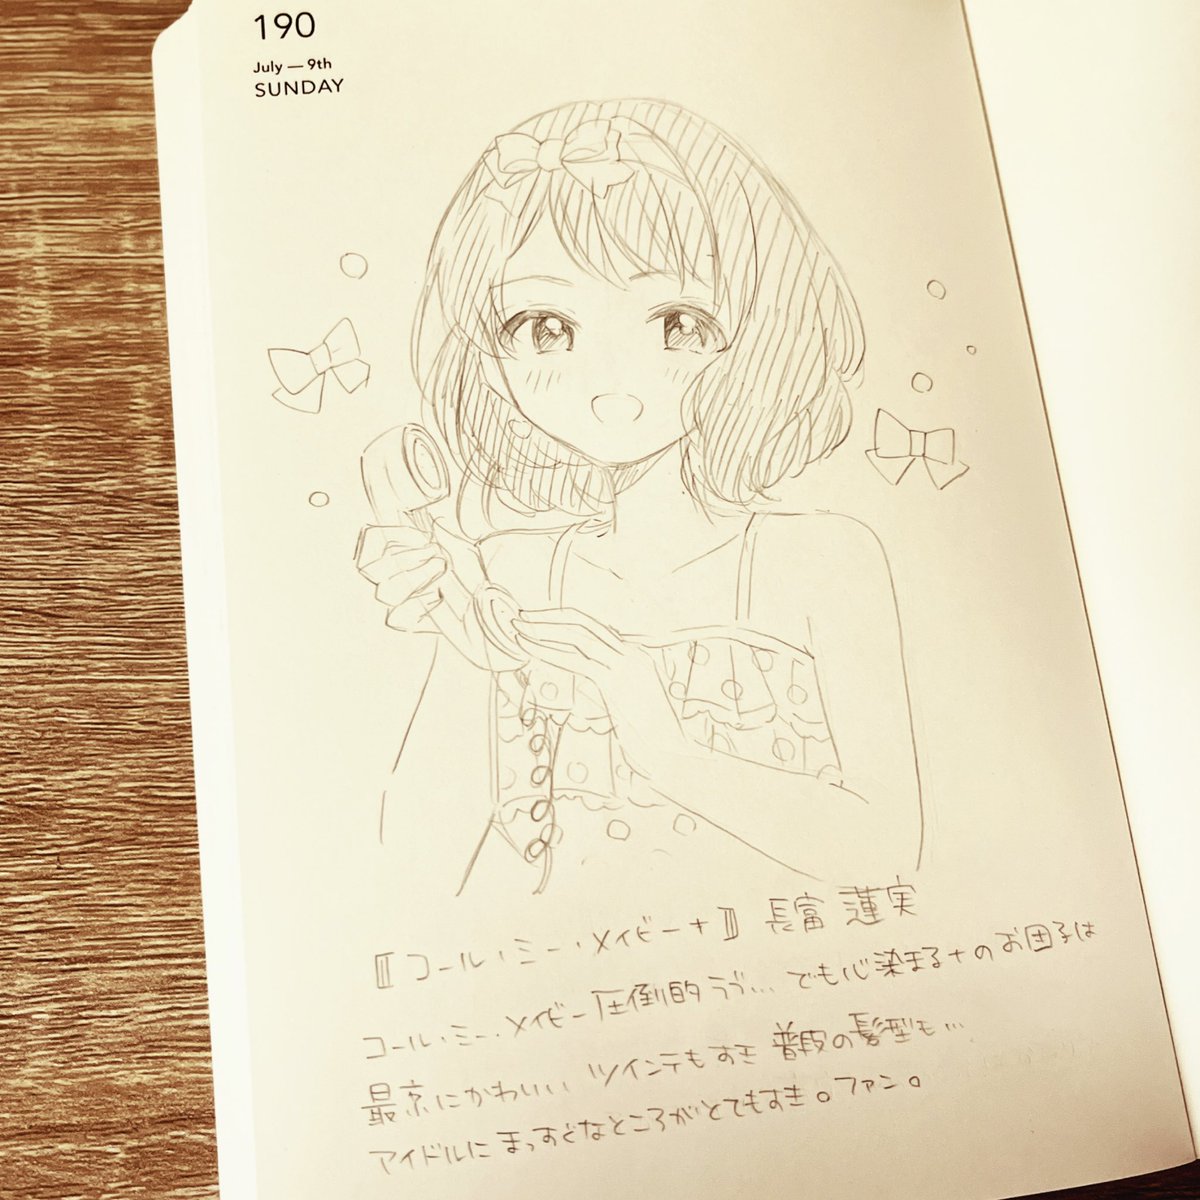 190
July — 9th
SUNDAY
〖コール・ミー・メイビー+〗 長富 蓮実
コール・ミー・メイビー圧倒的ラブ… でも心染まる+のお団子は
最高にかわいい ツインテもすき 普段の髪型も…
アイドルにまっすぐなところがとてもすき。ファン。